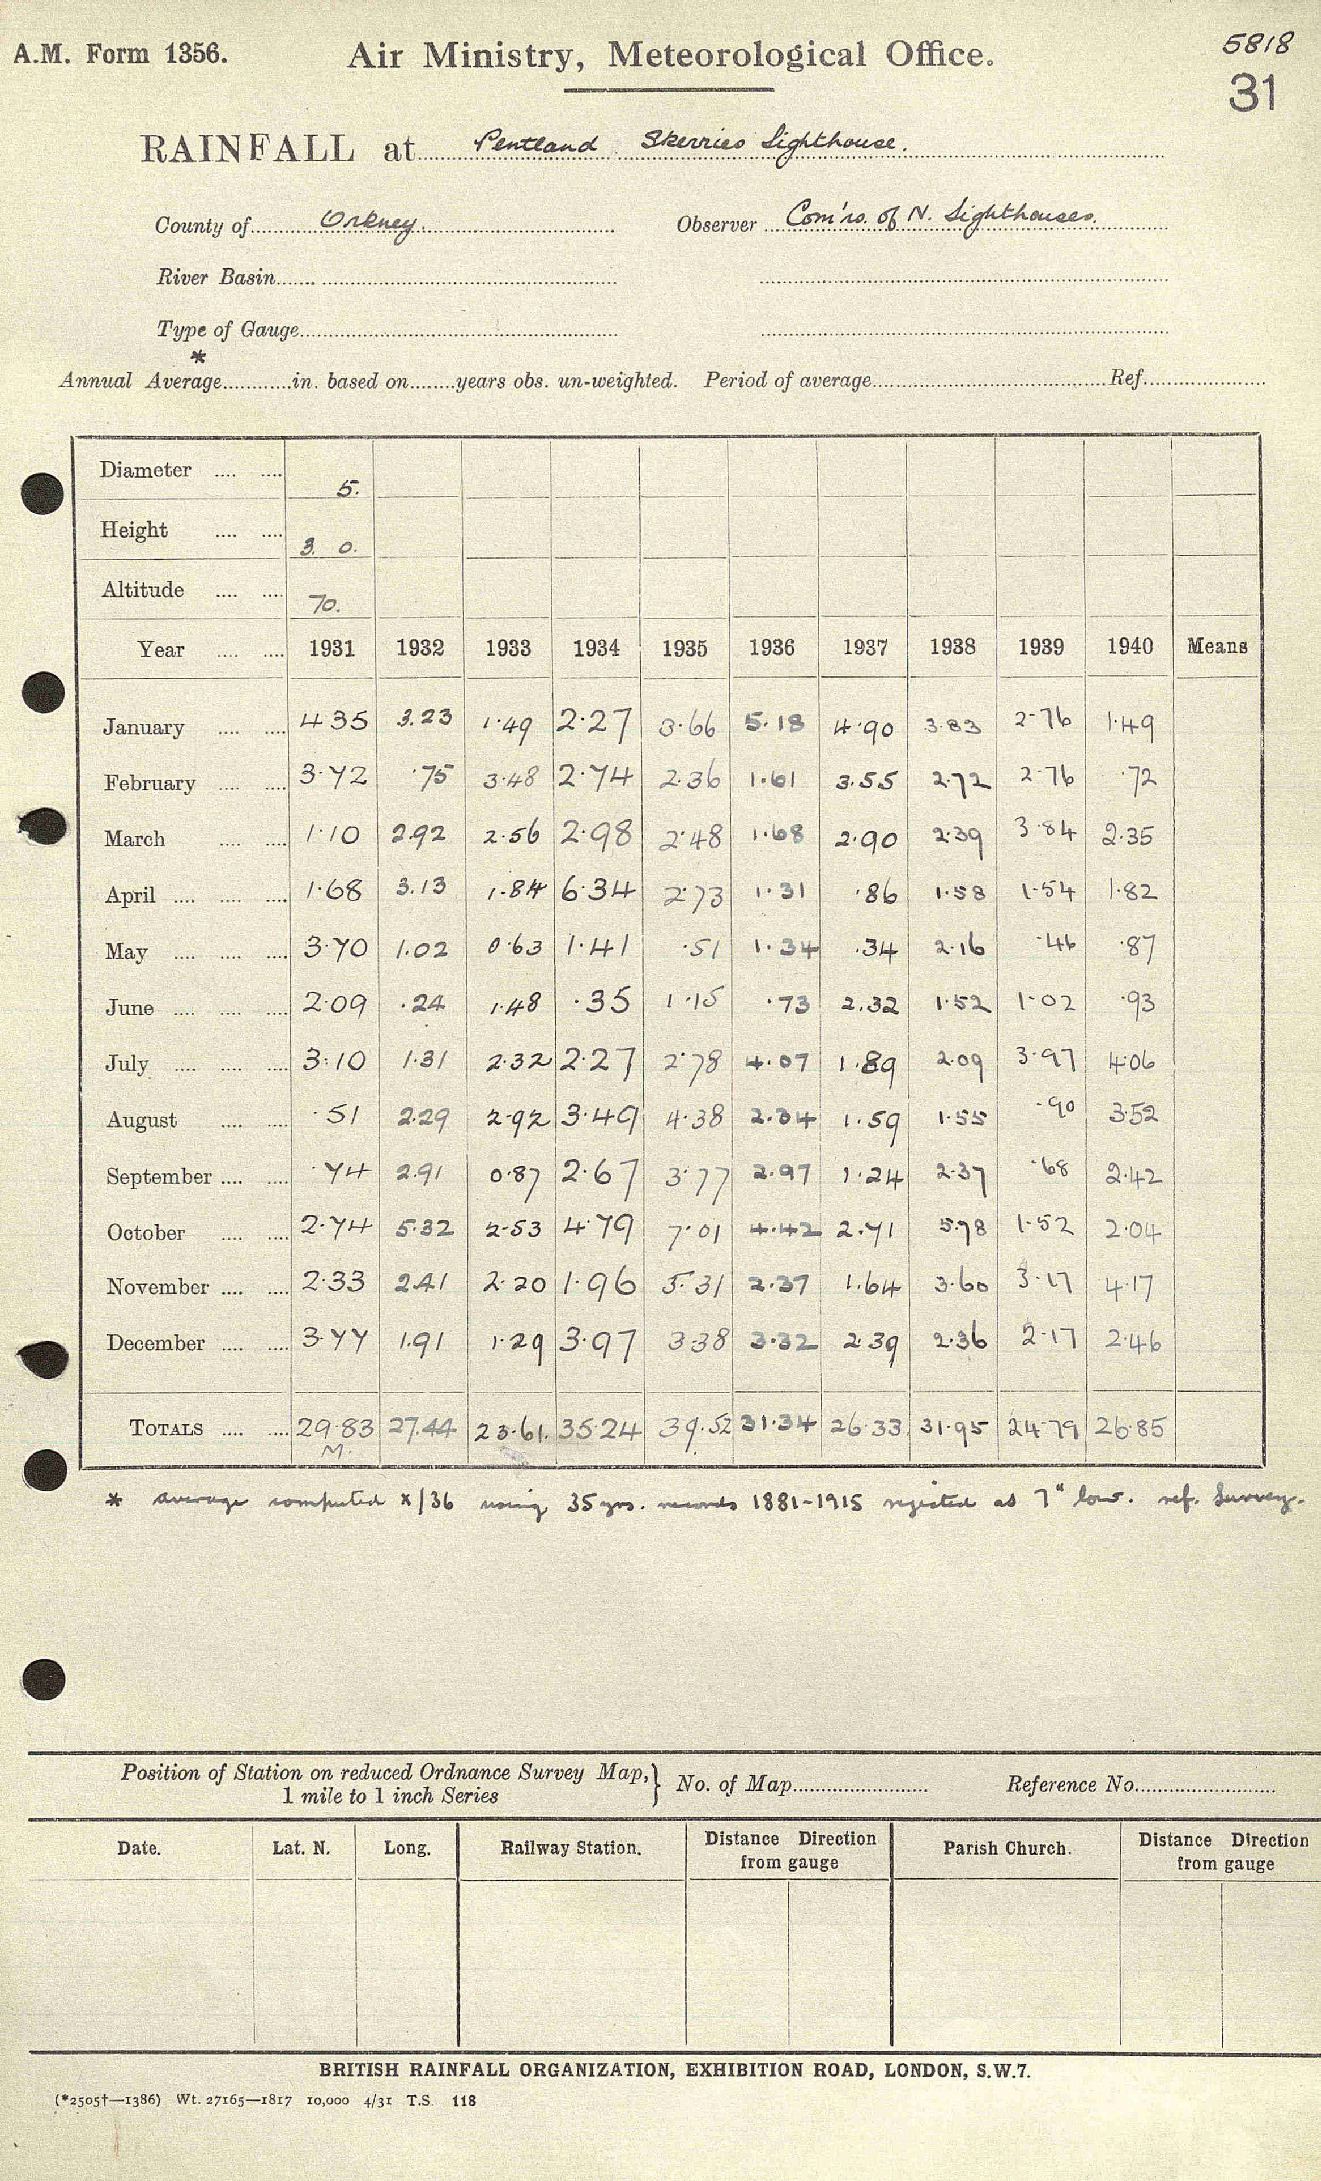 A.M. Form 1356.
Air Ministry, Meteorological Office.
5818
31
RAINFALL at Pentland Skerries Lighthouse.
County of Orkney. Observer Com'rs. of N. Lighthouses.
River Basin
Type of Gauge
*
Annual Average in. based on years obs. un-weighted. Period of average Ref.
Diameter 5.
Height 3. 0.
Altitude 70.
Year 1931 1932 1933 1934 1935 1936 1937 1938 1939 1940 Means
January 4 35 3.23 1.49 2.27 3.66 5.18 4.90 3.83 2.76 1.49
February 3.72 .75 3.48 2.74 2.36 1.61 3.55 2.72 2.76 .72
March 1.10 2.92 2.56 2.98 2.48 1.68 2.90 2.39 3.84 2.35
April 1.68 3.13 1.84 6.34 2.73 1.31 .86 1.58 1.54 1.82
May 3.70 1.02 0.63 1.41 .51 1.34 .34 2.16 .46 .87
June 2.09 .24 1.48 .35 1.15 .73 2.32 1.52 1.02 .93
July 3.10 1.31 2.32 2.27 2.78 4.07 1.89 2.09 3.97 4.06
August .51 2.29 2.92 3.49 4.38 2.34 1.59 1.55 .90 3.52
September .74 2.91 0.87 2.67 3.77 2.97 1.24 2.37 .68 2.42
October 2.74 5.32 2.53 4.79 7.01 4.42 2.71 5.78 1.52 2.04
November 2.33 2.41 2.20 1.96 5.31 2.37 1.64 3.60 3.17 4.17
December 3.77 1.91 1.29 3.97 3.38 3.32 2.39 2.36 2.17 2.46
TOTALS 29.83 27.44 23.61. 35.24 39.52 31.34 26.33 31.95 24.79 26.85
M.
* average computed x/36 using 35 yrs. records 1881-1915 rejected as 7" low. ref. Survey.
Position of Station on reduced Ordnance Survey Map, } No. of Map Reference No.
1 mile to 1 inch Series
Date. Lat. N. Long. Railway Station. Distance Direction from gauge Parish Church. Distance Direction from gauge
BRITISH RAINFALL ORGANIZATION, EXHIBITION ROAD, LONDON, S.W.7.
(*2505†—1386) Wt. 27165—1817 10,000 4/31 T.S. 118